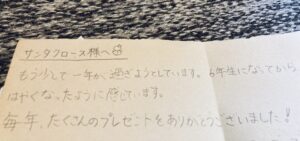 サンタクロース様へ
もう少しで一年が過ぎようとしています。6年生になってから
はやくなったように感じています。
毎年、たくさんのプレゼントをありがとうございました!